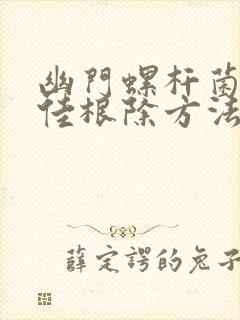 幽門螺杆菌
佳根除方法
薛定諤的兔子